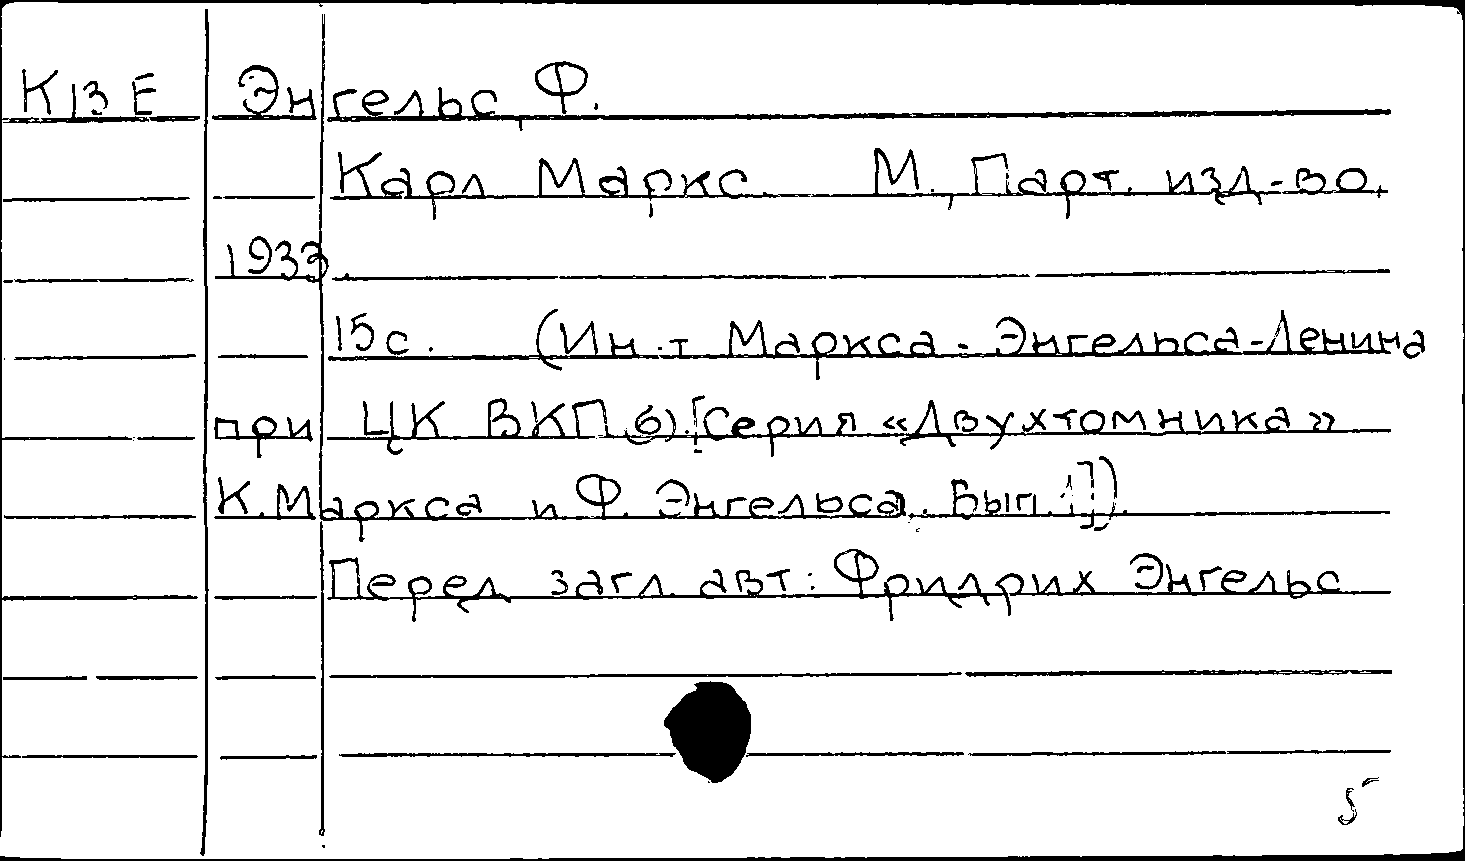 К13Е Энгельс, Ф.
Карл Маркс. М., Парт. изд-во,
1933.
15 с. (Ин-т Маркса-Энгельса-Ленина
при ЦК ВКП(б). [Серия «Двухтомника»
К. Маркса и Ф. Энгельса. Вып. 1]).
Перед загл. авт.: Фридрих Энгельс
5